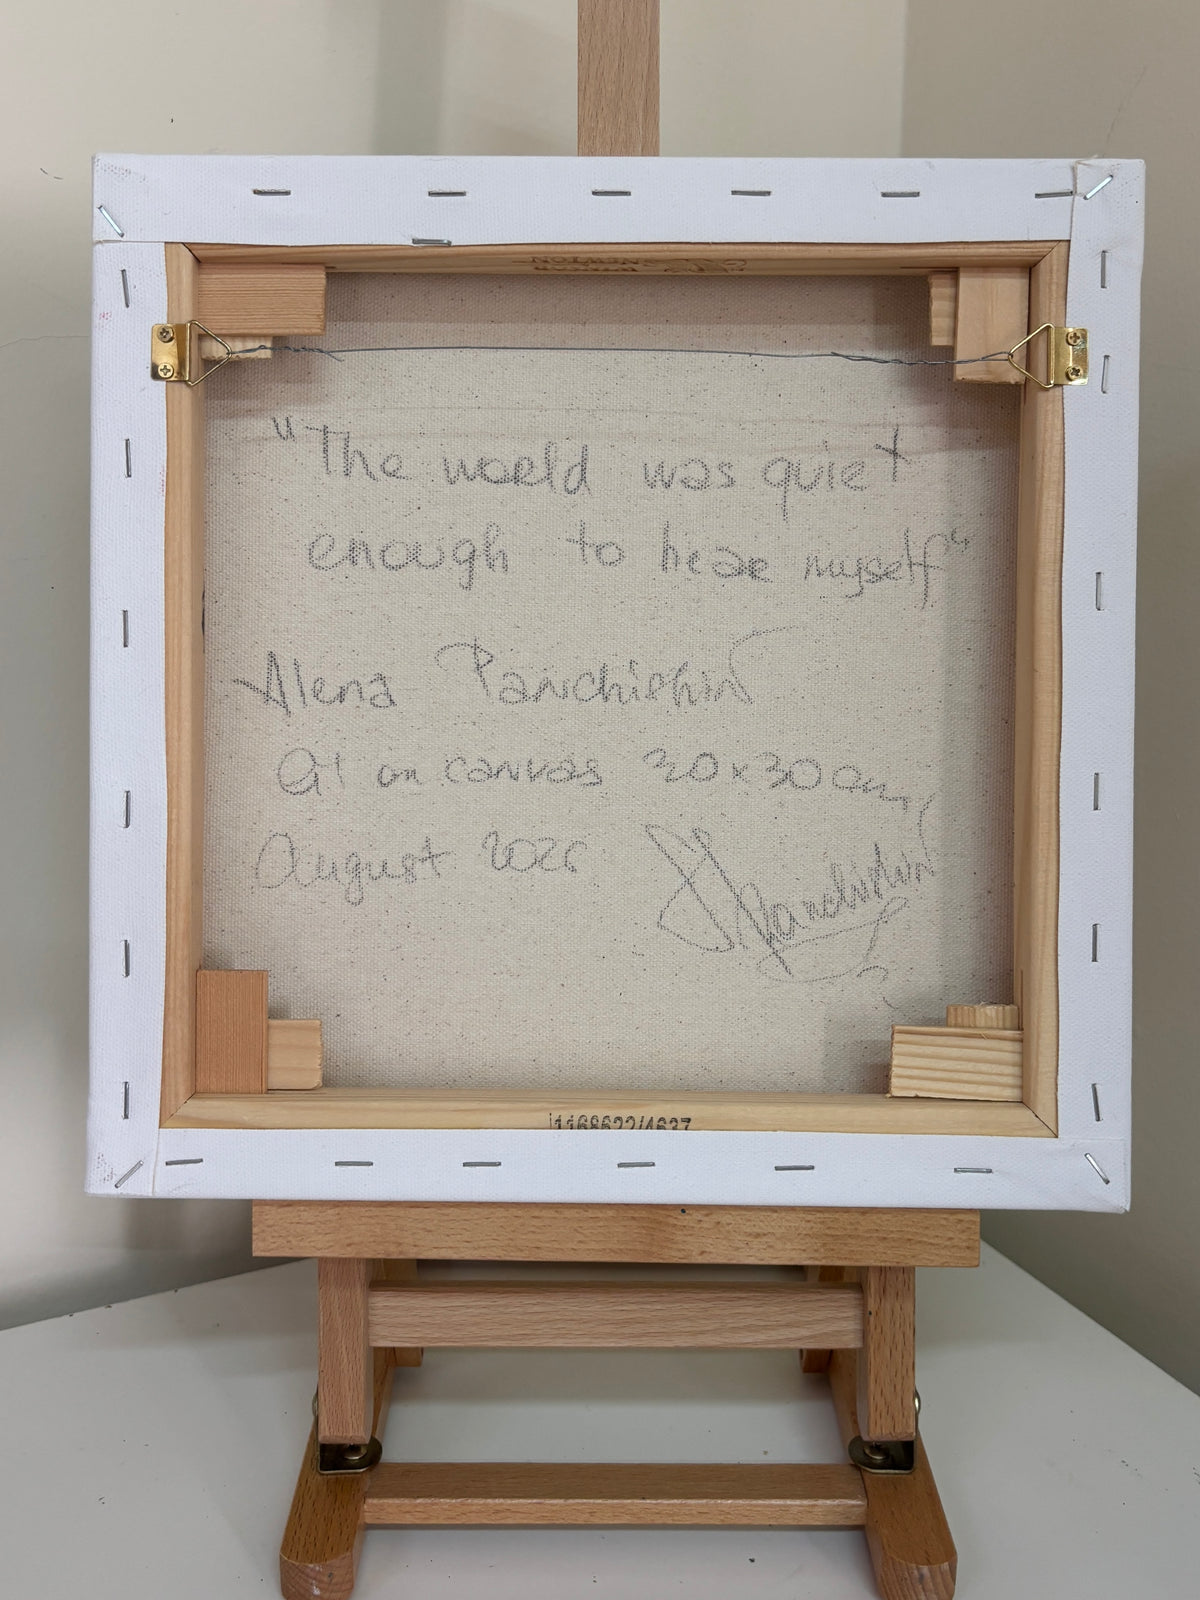 NEWTON
"The world was quiet
enough to hear myself"
Alena Panchishin
Oil on canvas 30x30 cm
August 2025
Panchishin
1168622/4637